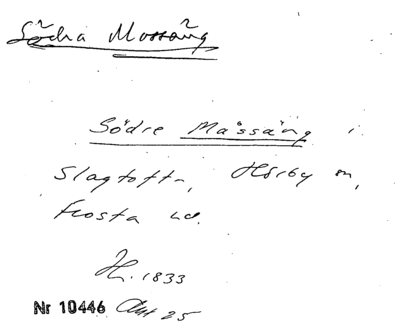 Södra Mossäng
Södre Måssäng i
Slagtofta, Hörby sn,
Frosta hd.
H. 1833
Nr 10446 Akt 25